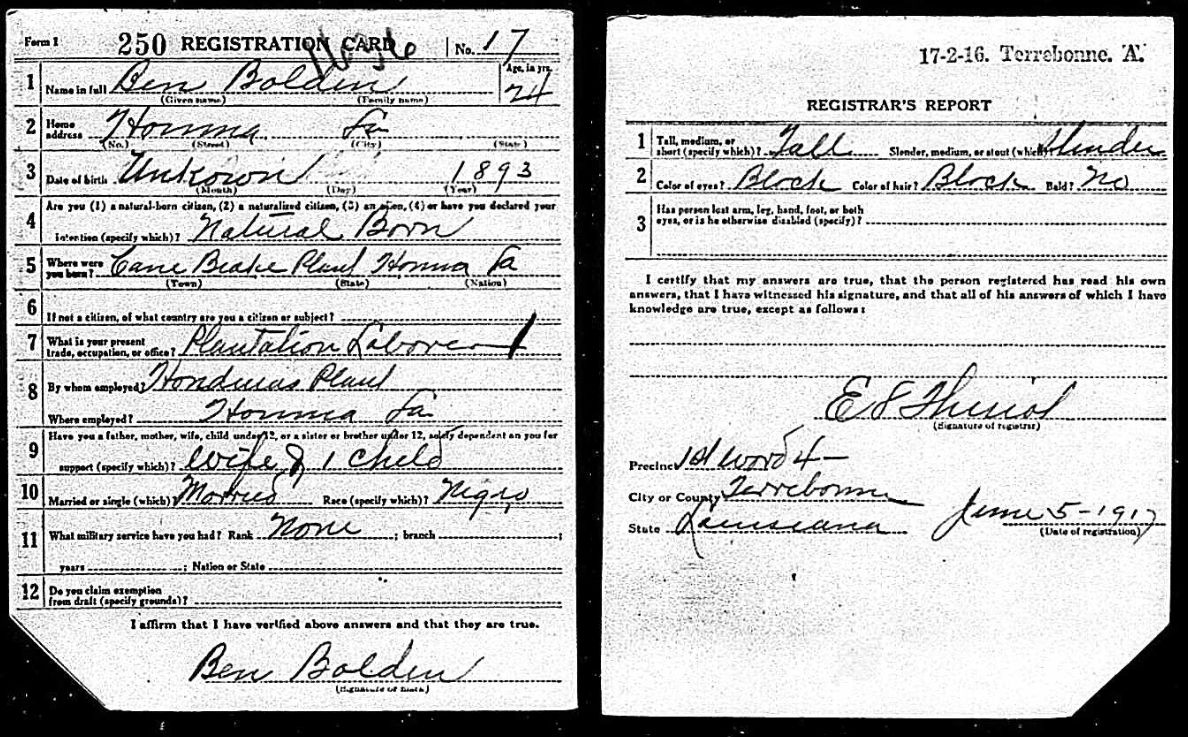 Form 1 250 REGISTRATION CARD No. 17
1 Name in full Ben Bolden Age, in yrs. 24
(Given name) (Family name)
2 Home address Homma La
(No.) (Street) (City) (State)
3 Date of birth Unkown 1893
(Month) (Day) (Year)
4 Are you (1) a natural-born citizen, (2) a naturalized citizen, (3) an alien, (4) or have you declared your
intention (specify which)? Natural Born
5 Where were you born? Cane Brake Plant Homma La
(Town) (State) (Nation)
6 If not a citizen, of what country are you a citizen or subject?
7 What is your present trade, occupation, or office? Plantation Laborer
8 By whom employed? Honduras Plant
Where employed? Homma La
9 Have you a father, mother, wife, child under 12, or a sister or brother under 12, solely dependent on you for
support (specify which)? Wife & 1 Child
10 Married or single (which)? Married Race (specify which)? Nigro
11 What military service have you had? Rank None ; branch ;
years ; Nation or State
12 Do you claim exemption
from draft (specify grounds)?
I affirm that I have verified above answers and that they are true.
Ben Bolden
17-2-16. Terrebonne. A.
REGISTRAR'S REPORT
1 Tall, medium, or short (specify which)? Tall Slender, medium, or stout (which)? Slender
2 Color of eyes? Black Color of hair? Black Bald? No
3 Has person lost arm, leg, hand, foot, or both
eyes, or is he otherwise disabled (specify)?
I certify that my answers are true, that the person registered has read his own
answers, that I have witnessed his signature, and that all of his answers of which I have
knowledge are true, except as follows:
(Signature of registrar)
Precinct 1st Word 4
City or County Terrebonne
State Louisiana June 5-1917
(Date of registration)